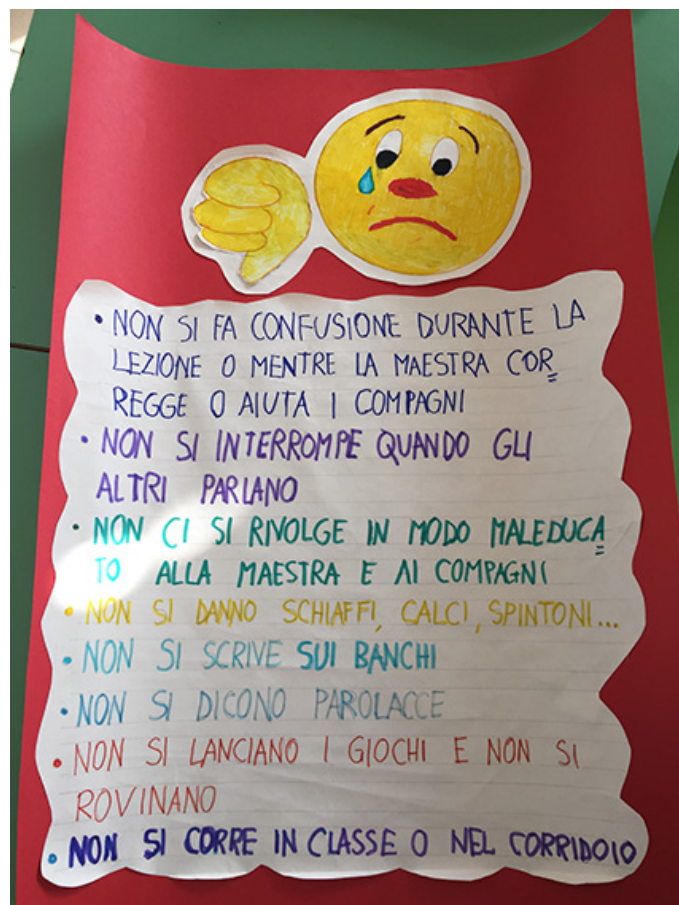 • NON SI FA CONFUSIONE DURANTE LA
LEZIONE O MENTRE LA MAESTRA COR
REGGE O AIUTA I COMPAGNI
• NON SI INTERROMPE QUANDO GLI
ALTRI PARLANO
• NON CI SI RIVOLGE IN MODO MALEDUCA
TO ALLA MAESTRA E AI COMPAGNI
• NON SI DANNO SCHIAFFI, CALCI, SPINTONI...
• NON SI SCRIVE SUI BANCHI
• NON SI DICONO PAROLACCE
• NON SI LANCIANO I GIOCHI E NON SI
ROVINANO
• NON SI CORRE IN CLASSE O NEL CORRIDOIO